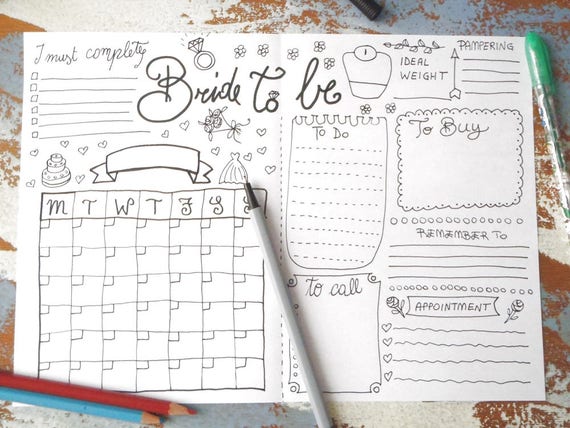 I must complete
Bride to be
M T W T F S S
To Do
To call
IDEAL
WEIGHT
PAMPERING
To Buy
REMEMBER TO
APPOINTMENT